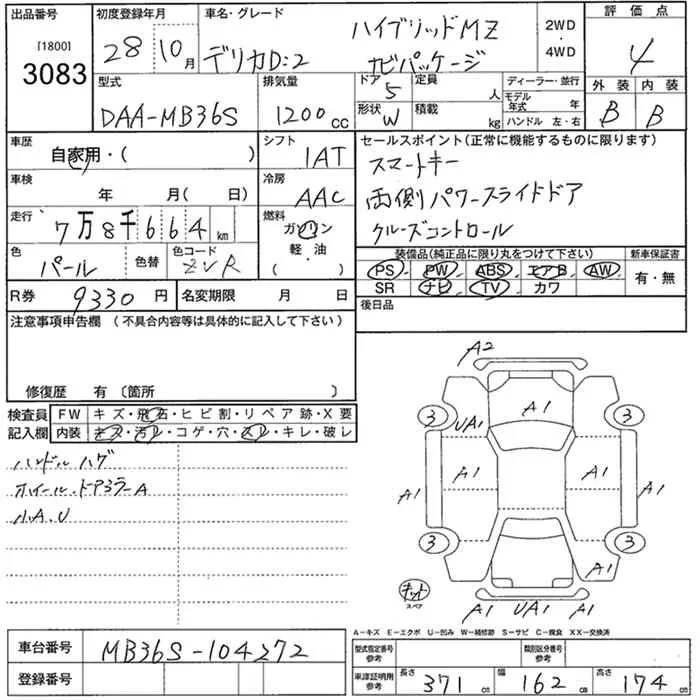 出品番号
[1800]
3083
初度登録年月
28 10月
車名・グレード
デリカD:2
ハイブリッドMZ
ナビパッケージ
2WD
・
4WD
評価点
4
外装 内装
B B
型式
DAA-MB36S
排気量
1200cc
ドア
5
定員
人
形状
W
積載
kg
ディーラー・並行
モデル年式 年
ハンドル 左・右
車歴
自家用・( )
シフト
1AT
車検
年 月( 日)
冷房
AAC
走行
7万8千664km
燃料
ガソリン
軽・油
( )
色
パール
色替
色コード
ZVR
R券
9330円
名変期限 月 日
セールスポイント(正常に機能するものに限ります)
スマートキー
両側パワースライドドア
クルーズコントロール
装備品(純正品に限り丸をつけて下さい)
PS PW ABS エアB AW
SR ナビ TV カワ
新車保証書
有・無
後日品
注意事項申告欄(不具合内容等は具体的に記入して下さい)
修復歴 有〔箇所 〕
検査員
記入欄
FW キズ・飛石・ヒビ割・リペア跡・X要
内装 キズ・汚レ・コゲ・穴・スレ・キレ・破レ
ハンドルハゲ
ホイール.ドアミラーA
小A.U
A2
A1
3
UA1
3
A1
A1
A1
A1
3
3
A1
キット
スペア
A1
UA1
A1
A-キズ E-エクボ U-凹み W-補修跡 S-サビ C-腐食 XX-交換済
車台番号
MB36S-104272
登録番号
型式指定番号
参考
類別区分番号
参考
車庫証明用
参考
長さ 371cm
幅 162cm
高さ 174cm